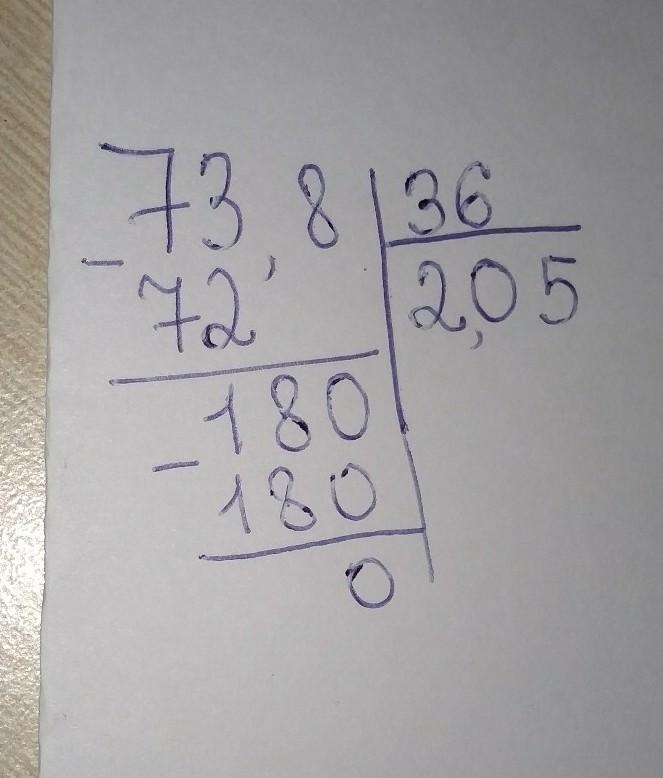 73,8 36
- 72 2,05
180
- 180
0